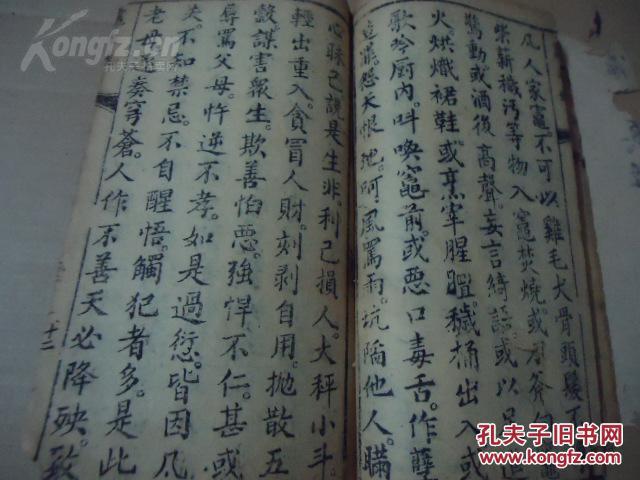 凡人家竈不可以雞毛犬骨頭髮
柴薪穢污等物入竈焚燒或用斧
驚動或酒後高聲妄言綺語或以
火烘熾裙鞋。或烹宰腥膻。穢桶出入或
歌吟厨内。呌喚竈前。或惡口毒舌。作孽
怨天恨地。呵風罵雨。坑陷他人。瞞
心昧己說是生非。利己損人。大秤小斗。
輕出重入。貪冒人財。刻剥自用。抛散五
穀。謀害衆生。欺善怕惡。強悍不仁。甚或
辱罵父母。忤逆不孝。如是過愆。皆因凡
夫。不知禁忌。不自醒悟。觸犯者多。是此
老母。奏穹蒼。人作不善天必降殃。致
Kongfz.com
孔夫子旧书网